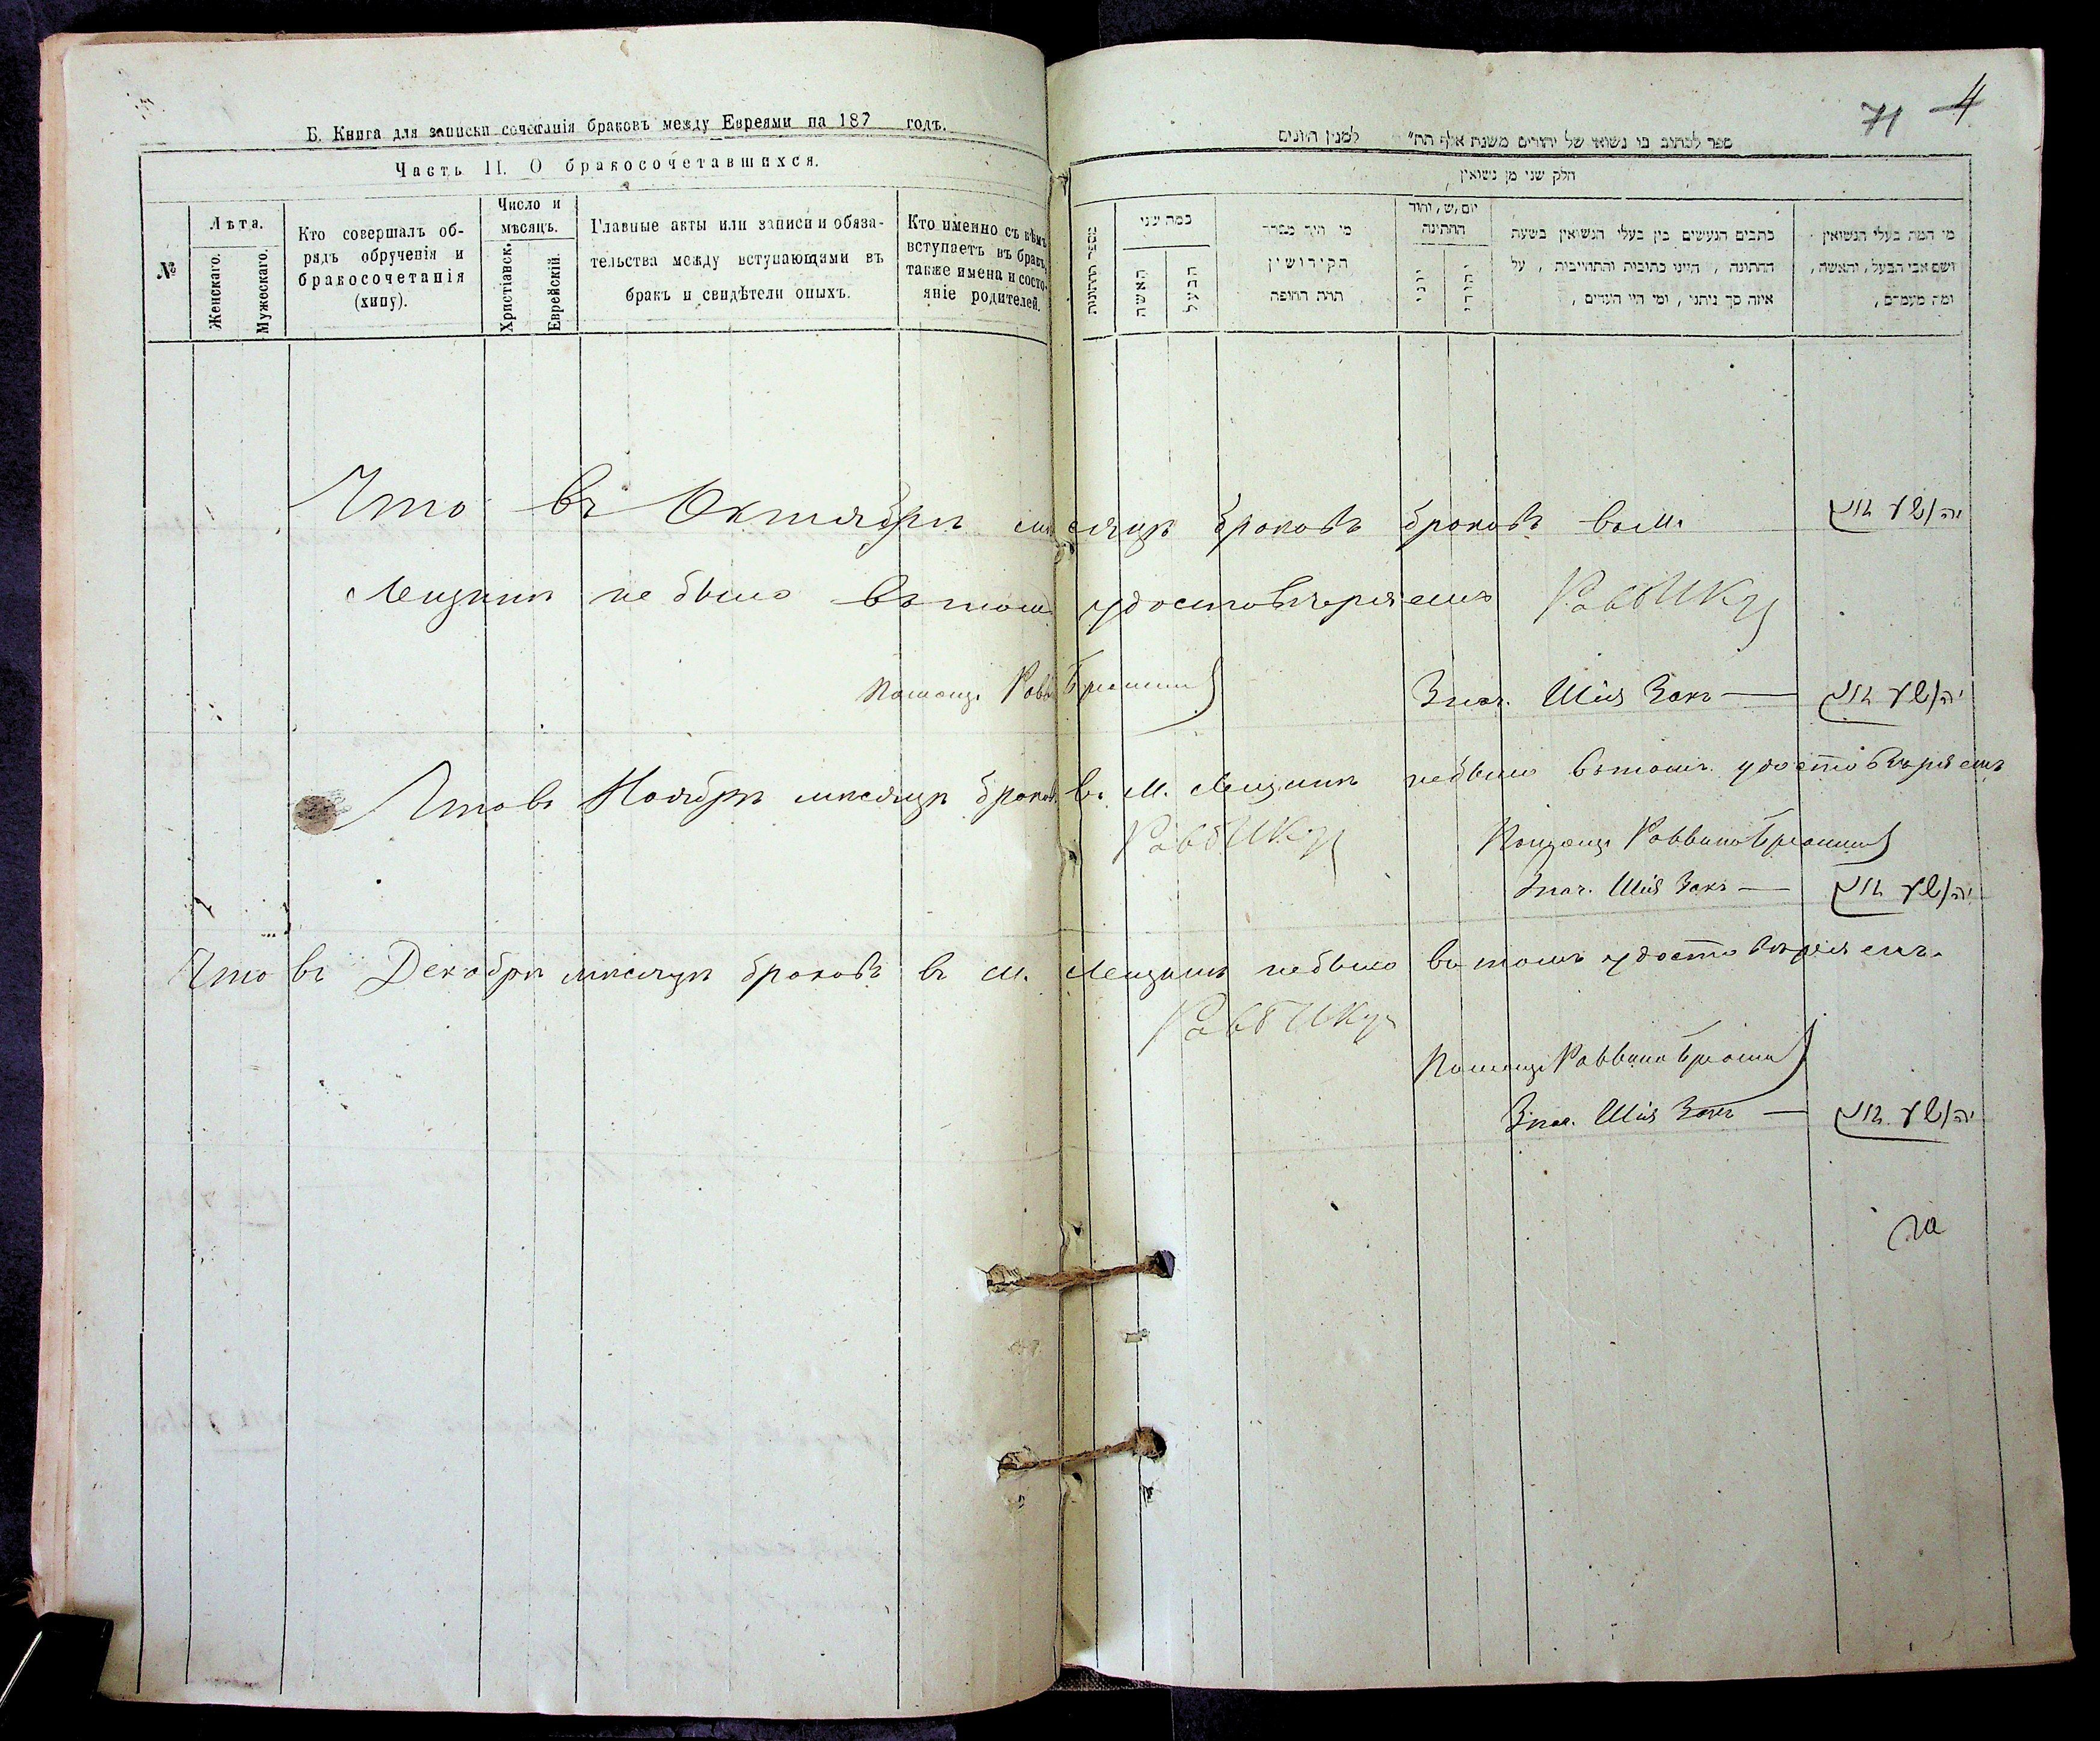 71 4
Б. Книга для записки сочетанія браковъ между Евреями на 187 годъ.
Часть II. О бракосочетавшихся.
№
Лѣта.
Женскаго.
Мужескаго.
Кто совершалъ об-
рядъ обрученія и
бракосочетанія
(хипу).
Число и
мѣсяцъ.
Христіанск.
Еврейскій.
Главные акты или записи и обяза-
тельства между вступающими въ
бракъ и свидѣтели оныхъ.
Кто именно съ кѣмъ
вступаетъ въ бракъ,
также имена и состо-
яніе родителей.
ספר לכתוב בו נשואי של יהודים משנת אלף תת״ למנין היונים
חלק שני מן נשואין
מספר החתונות
כמה שני
האשה
הבעל
מי היה מסדר
הקידושין
תחת החופה
החתונה
יוני
יהודי
כתבים הנעשים בין בעלי הנשואין בשעת
החתונה, היינו כתובות והתחייבות, על
איזה סך ניתני, ומי היו העדים,
מי המה בעלי הנשואין
ושם אבי הבעל, והאשה,
ומה מעמדם,
Что въ Октябрѣ мѣсяцѣ браковъ браковъ въ м. יהושע זאק
не было въ томъ удостовѣряемъ
Помощ. Равв
Знач. Шія Закъ — יהושע זאק
Что въ Ноябрѣ мѣсяцѣ браковъ въ м. не было въ томъ удостовѣряемъ
Помощ. Раввина
Знач. Шія Закъ — יהושע זאק
Что въ Декабрѣ мѣсяцѣ браковъ въ м. не было въ томъ удостовѣряемъ
Помощ. Раввина
Знач. Шія Закъ — יהושע זאק